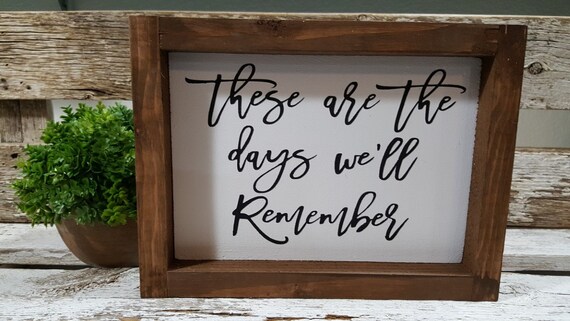 these are the
days we'll
Remember